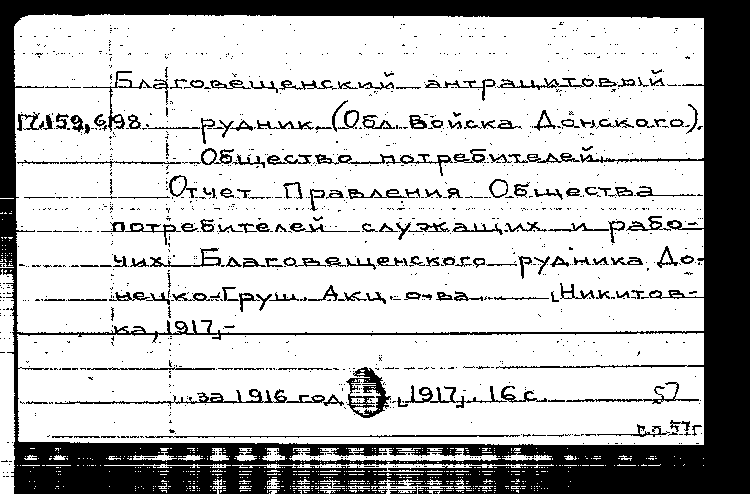 Благовещенский антрацитовый
П7.159,698. рудник (Обл. Войска Донского).
Общество потребителей.
Отчет Правления Общества
потребителей служащих и рабо-
чих Благовещенского рудника До-
нецко-Груш. Акц. о-ва. [Никитов-
ка, 1917].-
... за 1916 год. [1917]. 16 с. 57